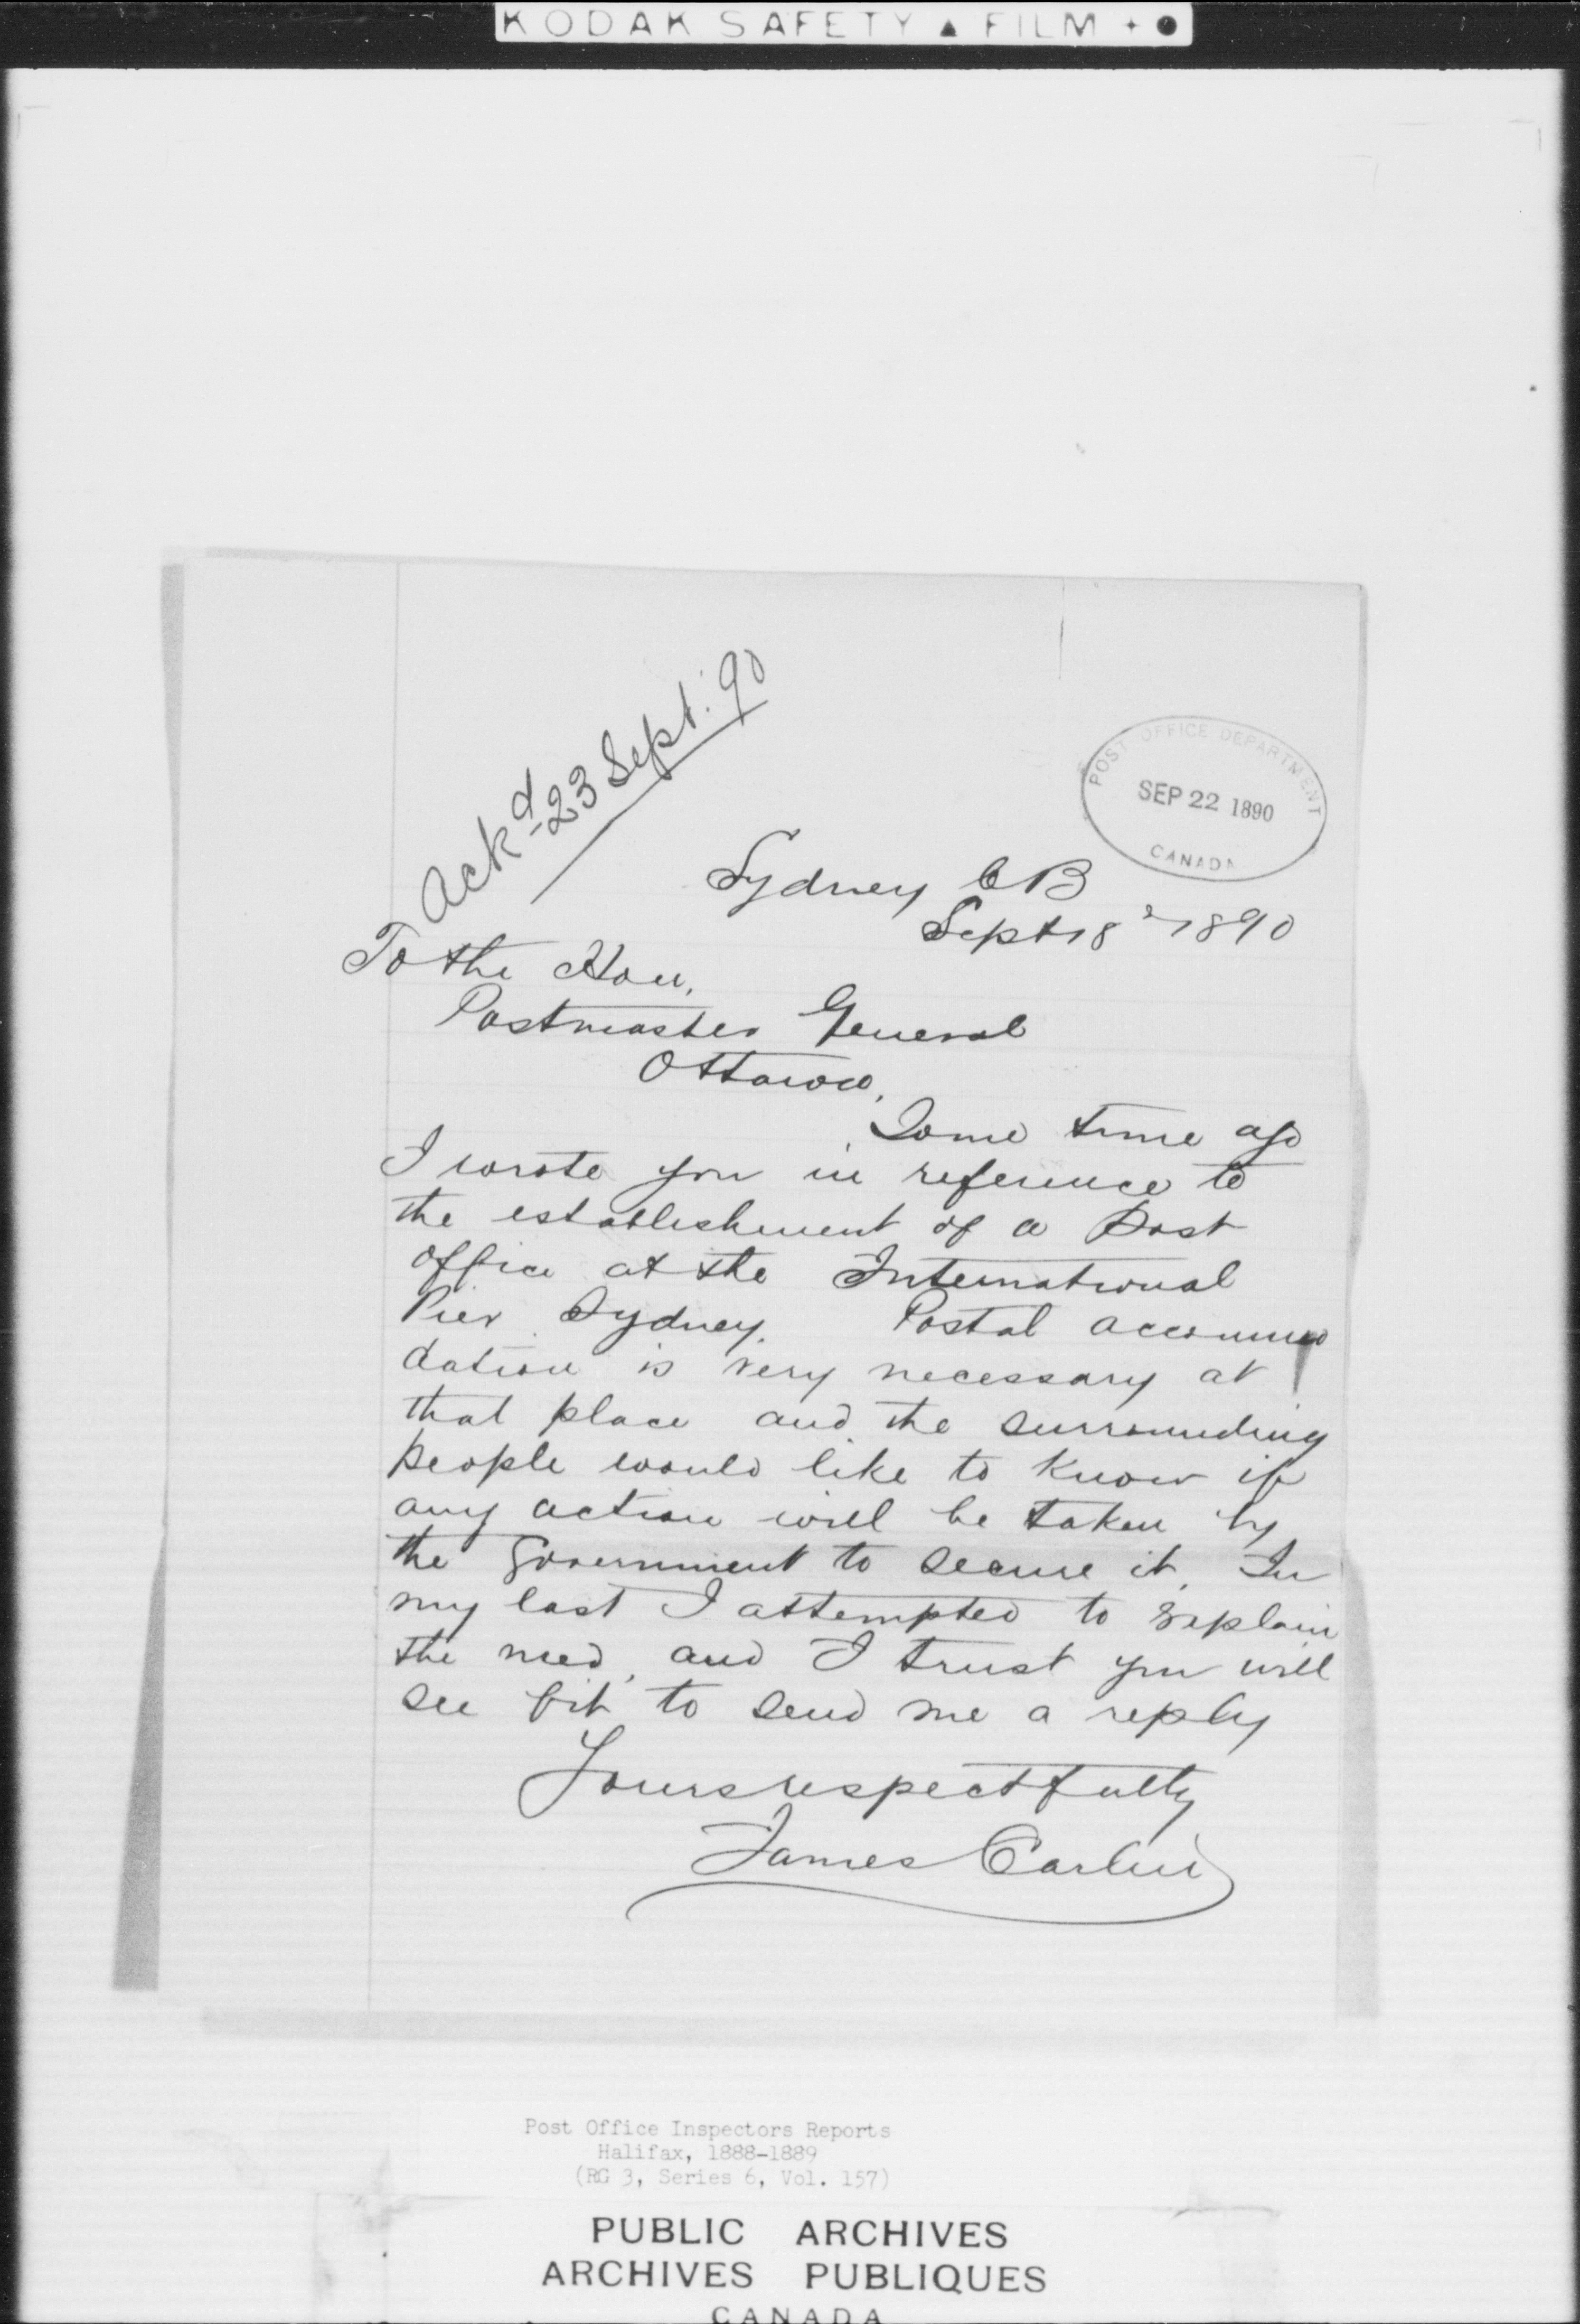 KODAK SAFETY ▲ FILM + ●
Ackd 23 Sept. 90
POST OFFICE DEPARTMENT
SEP 22 1890
CANADA
Sydney CB
Sept 18 1890
To the Hon,
Postmaster General
Ottawa,
Some time ago
I wrote you in reference to
the establishment of a Post
office at the International
Pier Sydney. Postal accommo
dation is very necessary at
that place and the surrounding
people would like to know if
any action will be taken by
the Government to secure it, In
my last I attempted to explain
the need, and I trust you will
see fit to send me a reply
Yours respectfully
James Carlin
Post Office Inspectors Reports
Halifax, 1888-1889
(RG 3, Series 6, Vol. 157)
PUBLIC ARCHIVES
ARCHIVES PUBLIQUES
CANADA